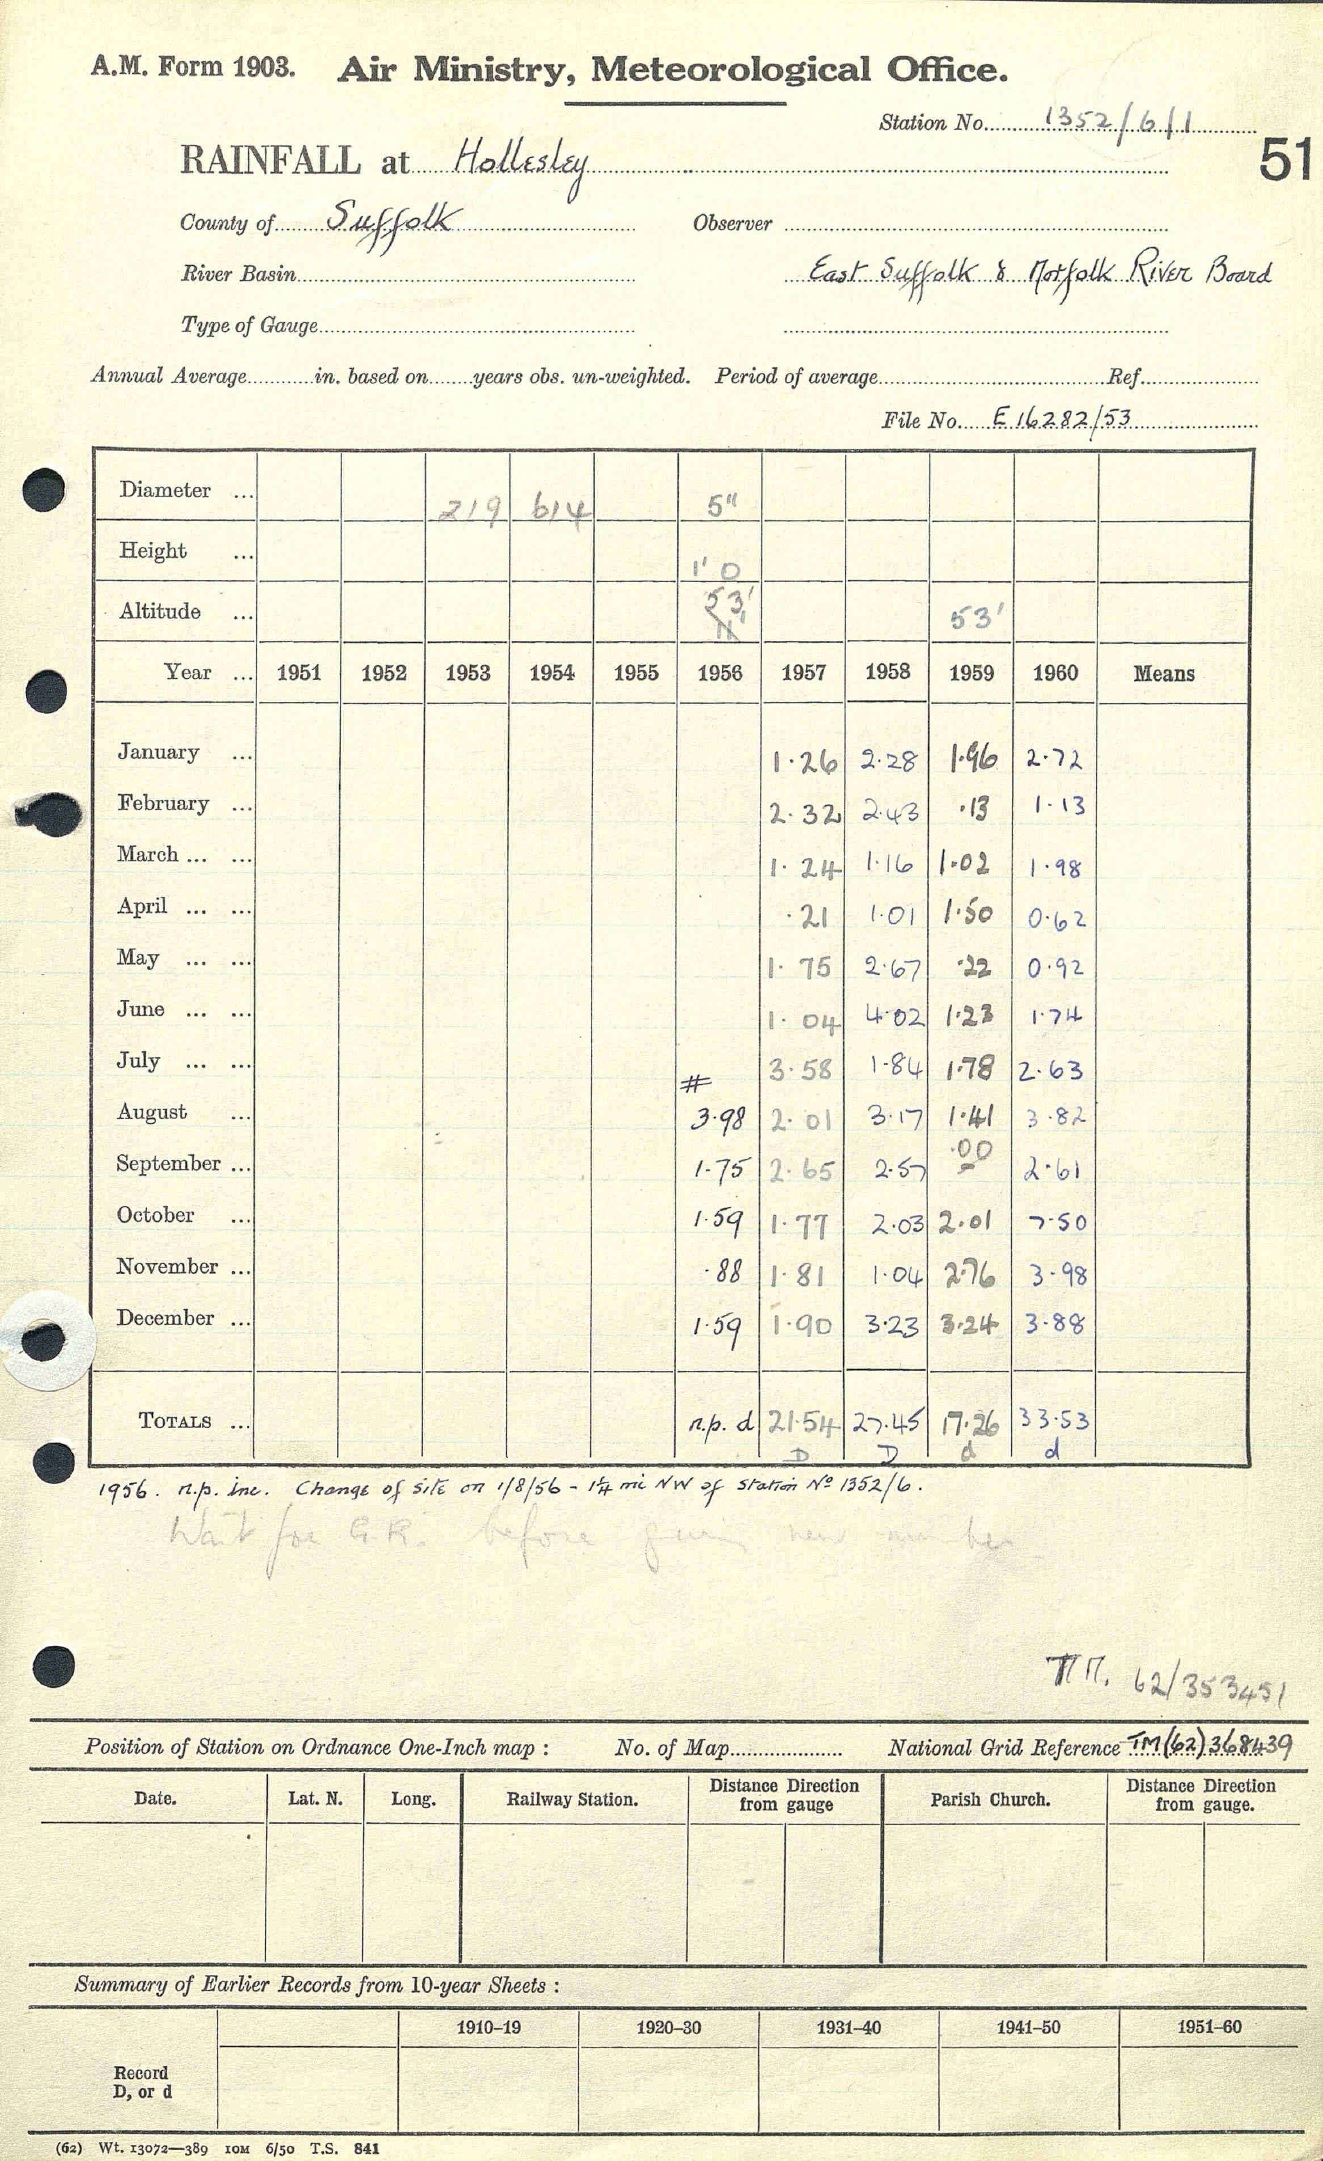 A.M. Form 1903. Air Ministry, Meteorological Office.
Station No. 1352/6/1
51
RAINFALL at Hollesley
County of Suffolk Observer
River Basin East Suffolk & Norfolk River Board
Type of Gauge
Annual Average in. based on years obs. un-weighted. Period of average Ref.
File No. E 16282/53
Diameter ... 219 614 5"
Height ... 1' 0
Altitude ... 53' 11' 53'
Year ... 1951 1952 1953 1954 1955 1956 1957 1958 1959 1960 Means
January ... 1.26 2.28 1.96 2.72
February ... 2.32 2.43 .13 1.13
March ... ... 1.24 1.16 1.02 1.98
April ... ... .21 1.01 1.50 0.62
May ... ... 1.75 2.67 .22 0.92
June ... ... 1.04 4.02 1.23 1.74
July ... ... # 3.58 1.84 1.78 2.63
August ... 3.98 2.01 3.17 1.41 3.82
September ... 1.75 2.65 2.57 .00 - 2.61
October ... 1.59 1.77 2.03 2.01 7.50
November ... .88 1.81 1.04 2.76 3.98
December ... 1.59 1.90 3.23 3.24 3.88
TOTALS ... n.p. d 21.54 27.45 17.26 33.53
D D d d
1956. n.p. inc. Change of site on 1/8/56 - 1¼ mi NW of Station No 1352/6.
Wait for G.R. before giving new number
62/353451
Position of Station on Ordnance One-Inch map : No. of Map National Grid Reference TM(62)368439
Date. Lat. N. Long. Railway Station. Distance Direction from gauge Parish Church. Distance Direction from gauge.
Summary of Earlier Records from 10-year Sheets :
1910–19 1920–30 1931–40 1941–50 1951–60
Record
D, or d
(62) Wt. 13072—389 10M 6/50 T.S. 841